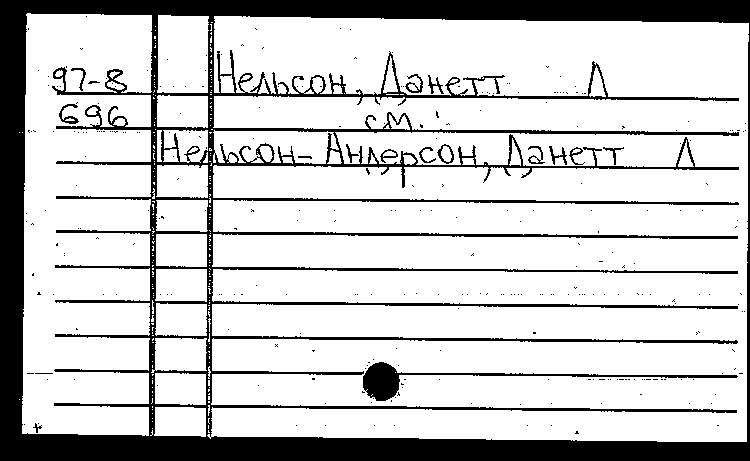 97-8 Нельсон, Данетт Л
696 см.:
Нельсон-Андерсон, Данетт Л